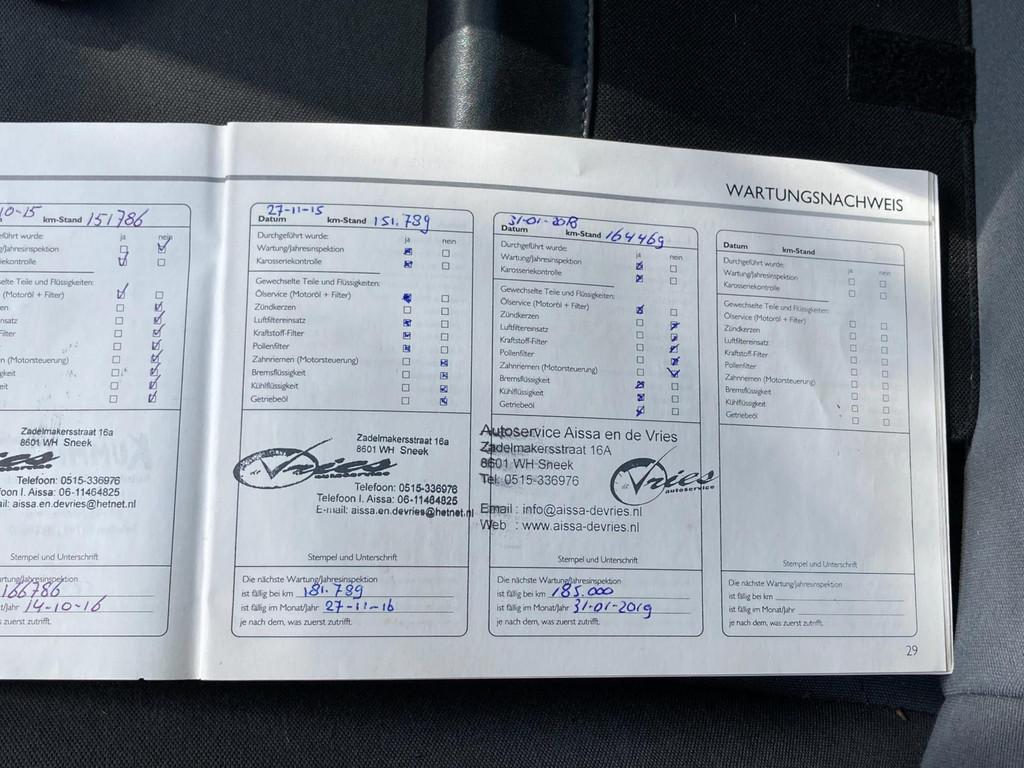 WARTUNGSNACHWEIS
10-15
km-Stand 151786
führt wurde: ja nein
g/Jahresinspektion
iekontrolle
selte Teile und Flüssigkeiten:
(Motoröl + Filter)
en
nsatz
Filter
n (Motorsteuerung)
gkeit
eit
Zadelmakersstraat 16a
8601 WH Sneek
Telefoon: 0515-336976
foon I. Aissa: 06-11464825
ail: aissa.en.devries@hetnet.nl
Stempel und Unterschrift
rtung/Jahresinspektion
166786
t/Jahr 14-10-16
zuerst zutrifft.
27-11-15
Datum km-Stand 151.789
Durchgeführt wurde: ja nein
Wartung/Jahresinspektion
Karosseriekontrolle
Gewechselte Teile und Flüssigkeiten:
Ölservice (Motoröl + Filter)
Zündkerzen
Luftfiltereinsatz
Kraftstoff-Filter
Pollenfilter
Zahnriemen (Motorsteuerung)
Bremsflüssigkeit
Kühlflüssigkeit
Getriebeöl
Zadelmakersstraat 16a
8601 WH Sneek
de Vries
Telefoon: 0515-336976
Telefoon I. Aissa: 06-11464825
E-mail: aissa.en.devries@hetnet.nl
Stempel und Unterschrift
Die nächste Wartung/Jahresinspektion
ist fällig bei km 181.789
ist fällig im Monat/Jahr 27-11-16
je nach dem, was zuerst zutrifft.
31-01-2018
Datum km-Stand 164469
Durchgeführt wurde: ja nein
Wartung/Jahresinspektion
Karosseriekontrolle
Gewechselte Teile und Flüssigkeiten:
Ölservice (Motoröl + Filter)
Zündkerzen
Luftfiltereinsatz
Kraftstoff-Filter
Pollenfilter
Zahnriemen (Motorsteuerung)
Bremsflüssigkeit
Kühlflüssigkeit
Getriebeöl
Autoservice Aissa en de Vries
Zadelmakersstraat 16A
8601 WH Sneek
Tel: 0515-336976
de Vries
autoservice
Email : info@aissa-devries.nl
Web : www.aissa-devries.nl
Stempel und Unterschrift
Die nächste Wartung/Jahresinspektion
ist fällig bei km 185.000
ist fällig im Monat/Jahr 31-01-2019
je nach dem, was zuerst zutrifft.
Datum km-Stand
Durchgeführt wurde: ja nein
Wartung/Jahresinspektion
Karosseriekontrolle
Gewechselte Teile und Flüssigkeiten:
Ölservice (Motoröl + Filter)
Zündkerzen
Luftfiltereinsatz
Kraftstoff-Filter
Pollenfilter
Zahnriemen (Motorsteuerung)
Bremsflüssigkeit
Kühlflüssigkeit
Getriebeöl
Stempel und Unterschrift
Die nächste Wartung/Jahresinspektion
ist fällig bei km
ist fällig im Monat/Jahr
je nach dem, was zuerst zutrifft.
29